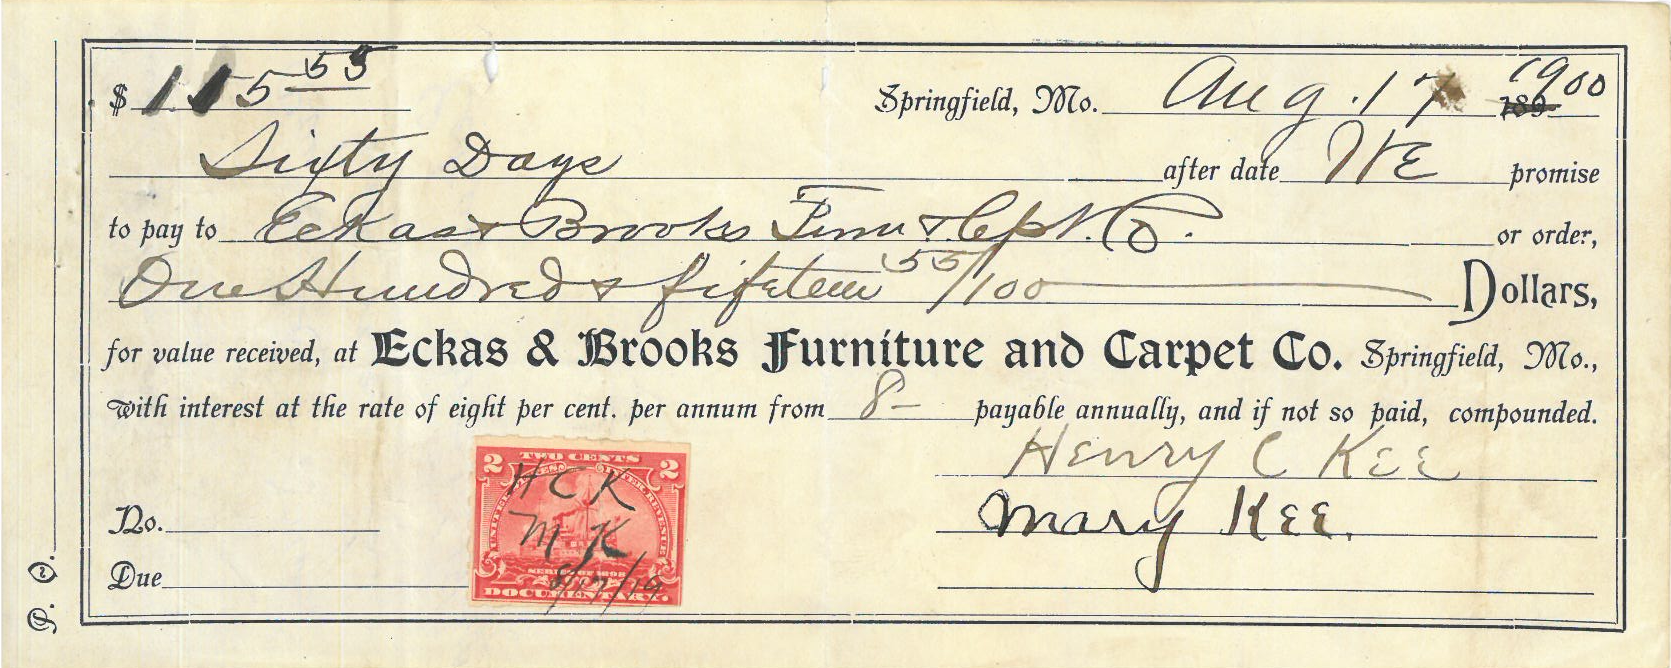 $ 115 55 Springfield, Mo. Aug. 17 189 1900
Sixty Days after date WE promise
to pay to Eckas & Brooks Furn & Cpt. Co. or order,
One Hundred & fifteen 55/100 Dollars,
for value received, at Eckas & Brooks Furniture and Carpet Co. Springfield, Mo.,
with interest at the rate of eight per cent. per annum from 8- payable annually, and if not so paid, compounded.
Henry C Kee
Mary Kee.
No.
Due
P. O.
2 TWO CENTS 2
UNITED STATES INTER. REVENUE
HCK
MK
SERIES OF 1898
8/17/19
DOCUMENTARY.